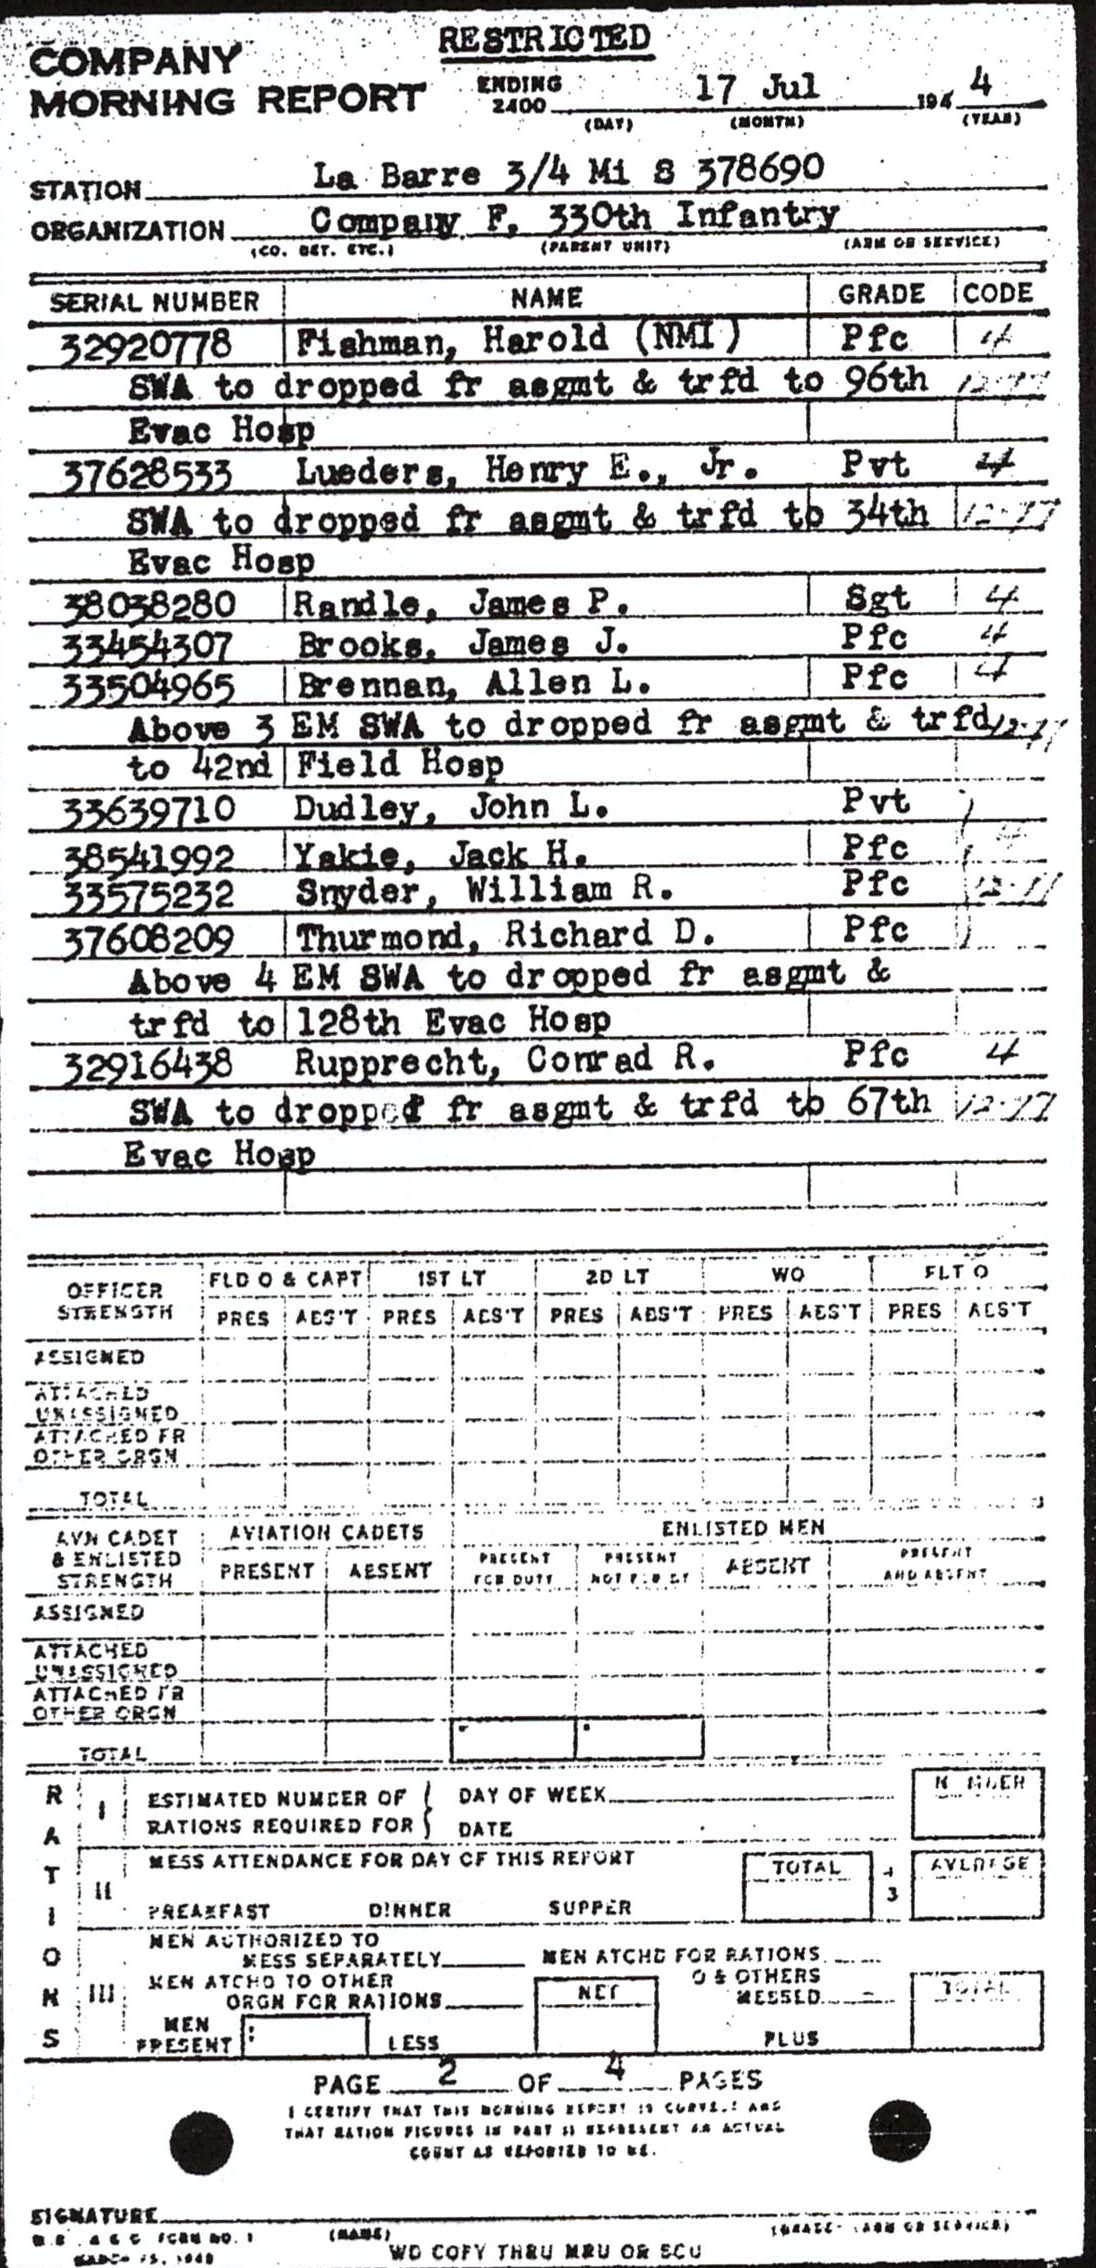 RESTRICTED
COMPANY
MORNING REPORT
ENDING 2400 17 Jul 194 4
(DAY) (MONTH) (YEAR)
STATION La Barre 3/4 Mi S 378690
ORGANIZATION Company F, 330th Infantry
(CO. DET. ETC.) (PARENT UNIT) (ARM OR SERVICE)
SERIAL NUMBER NAME GRADE CODE
32920778 Fishman, Harold (NMI) Pfc 4
SWA to dropped fr asgmt & trfd to 96th 12-77
Evac Hosp
37628533 Lueders, Henry E., Jr. Pvt 4
SWA to dropped fr asgmt & trfd to 34th 12-77
Evac Hosp
38038280 Randle, James P. Sgt 4
33454307 Brooks, James J. Pfc 4
33504965 Brennan, Allen L. Pfc 4
Above 3 EM SWA to dropped fr asgmt & trfd
to 42nd Field Hosp
33639710 Dudley, John L. Pvt
38541992 Yakie, Jack H. Pfc 4
33575232 Snyder, William R. Pfc
37608209 Thurmond, Richard D. Pfc
Above 4 EM SWA to dropped fr asgmt &
trfd to 128th Evac Hosp
32916438 Rupprecht, Conrad R. Pfc 4
SWA to dropped fr asgmt & trfd to 67th 12-77
Evac Hosp
OFFICER STRENGTH FLD O & CAPT 1ST LT 2D LT WO FLT O
PRES ABS'T PRES ABS'T PRES ABS'T PRES ABS'T PRES ABS'T
ASSIGNED
ATTACHED
UNASSIGNED
ATTACHED FR
OTHER ORGN
TOTAL
AVN CADET & ENLISTED STRENGTH AVIATION CADETS ENLISTED MEN
PRESENT ABSENT PRESENT FOR DUTY PRESENT NOT FOR DY ABSENT PRESENT AND ABSENT
ASSIGNED
ATTACHED
UNASSIGNED
ATTACHED FR
OTHER ORGN
TOTAL
RATIONS
I ESTIMATED NUMBER OF RATIONS REQUIRED FOR DAY OF WEEK NUMBER
DATE
II MESS ATTENDANCE FOR DAY OF THIS REPORT TOTAL ÷ 3 AVERAGE
BREAKFAST DINNER SUPPER
III MEN AUTHORIZED TO
MESS SEPARATELY MEN ATCHD FOR RATIONS
MEN ATCHD TO OTHER
ORGN FOR RATIONS NET O & OTHERS MESSED TOTAL
MEN PRESENT LESS PLUS
PAGE 2 OF 4 PAGES
I CERTIFY THAT THIS MORNING REPORT IS CORRECT AND
THAT RATION FIGURES IN PART III REPRESENT AN ACTUAL
COUNT AS REPORTED TO ME.
SIGNATURE
(NAME) (GRADE- (ARM OR SERVICE)
W.D., A G O FORM NO. 1
WD COPY THRU MRU OR SCU